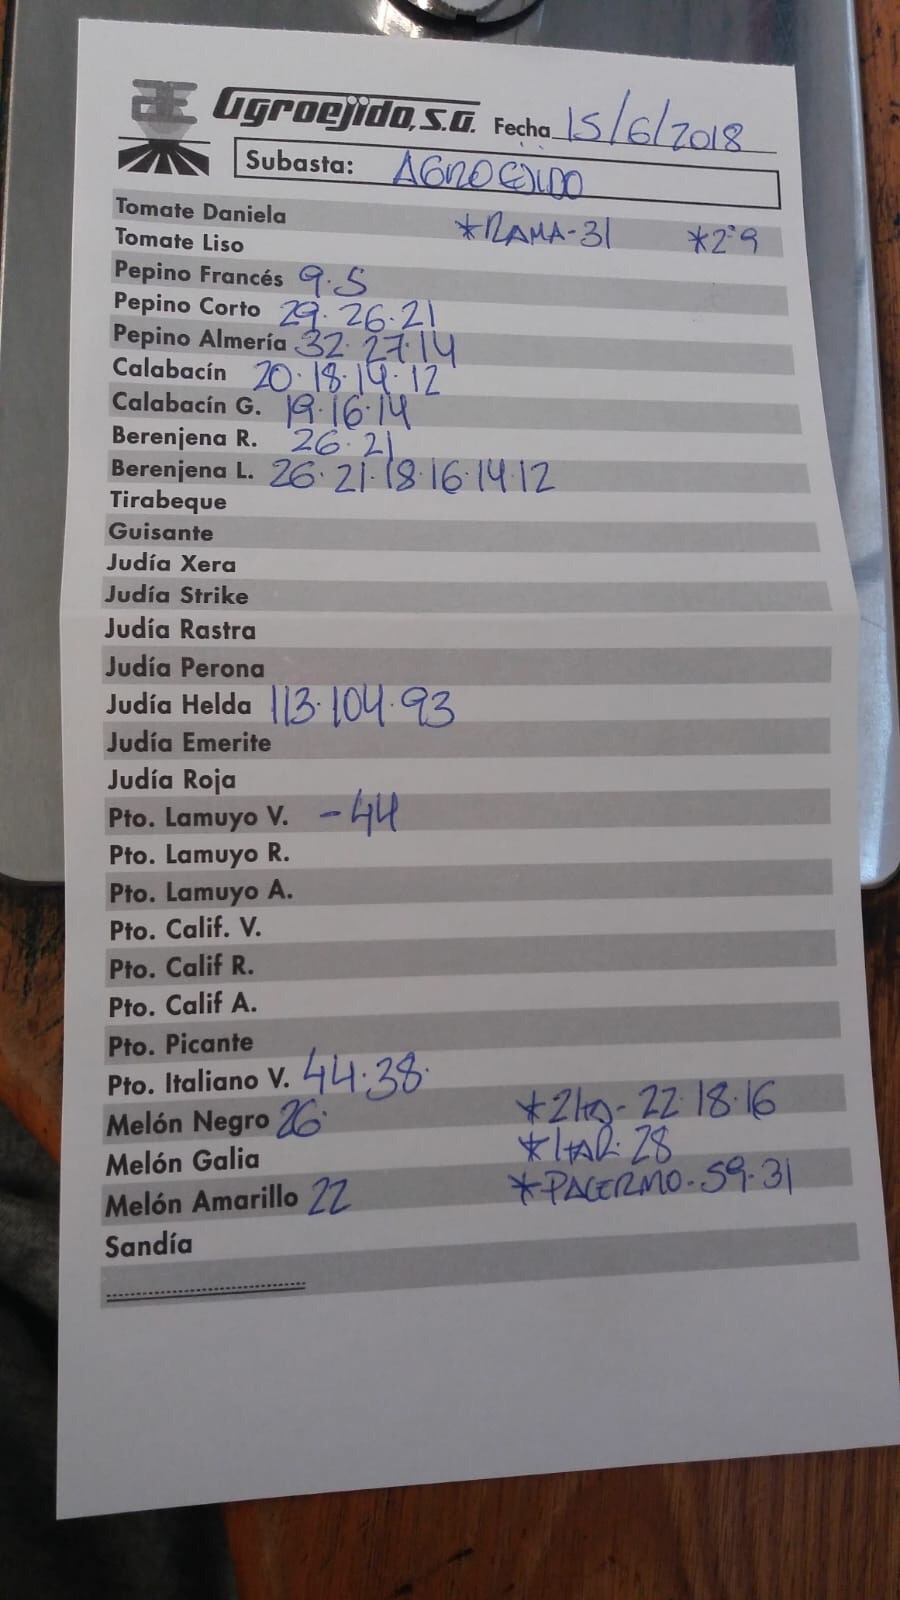 Agroejido, S.A. Fecha 15/6/2018
Subasta: AGROEJIDO
Tomate Daniela *RAMA-31 *2ª9
Tomate Liso
Pepino Francés 9.5
Pepino Corto 29.26.21
Pepino Almería 32.27.14
Calabacín 20.18.14.12
Calabacín G. 19.16.14
Berenjena R. 26.21
Berenjena L. 26.21.18.16.14.12
Tirabeque
Guisante
Judía Xera
Judía Strike
Judía Rastra
Judía Perona
Judía Helda 113.104.93
Judía Emerite
Judía Roja
Pto. Lamuyo V. -44
Pto. Lamuyo R.
Pto. Lamuyo A.
Pto. Calif. V.
Pto. Calif R.
Pto. Calif A.
Pto. Picante
Pto. Italiano V. 44.38.
Melón Negro 26. 22.18.16
Melón Galia *ITAL. 28
Melón Amarillo 22 *PALERMO-59.31
Sandía